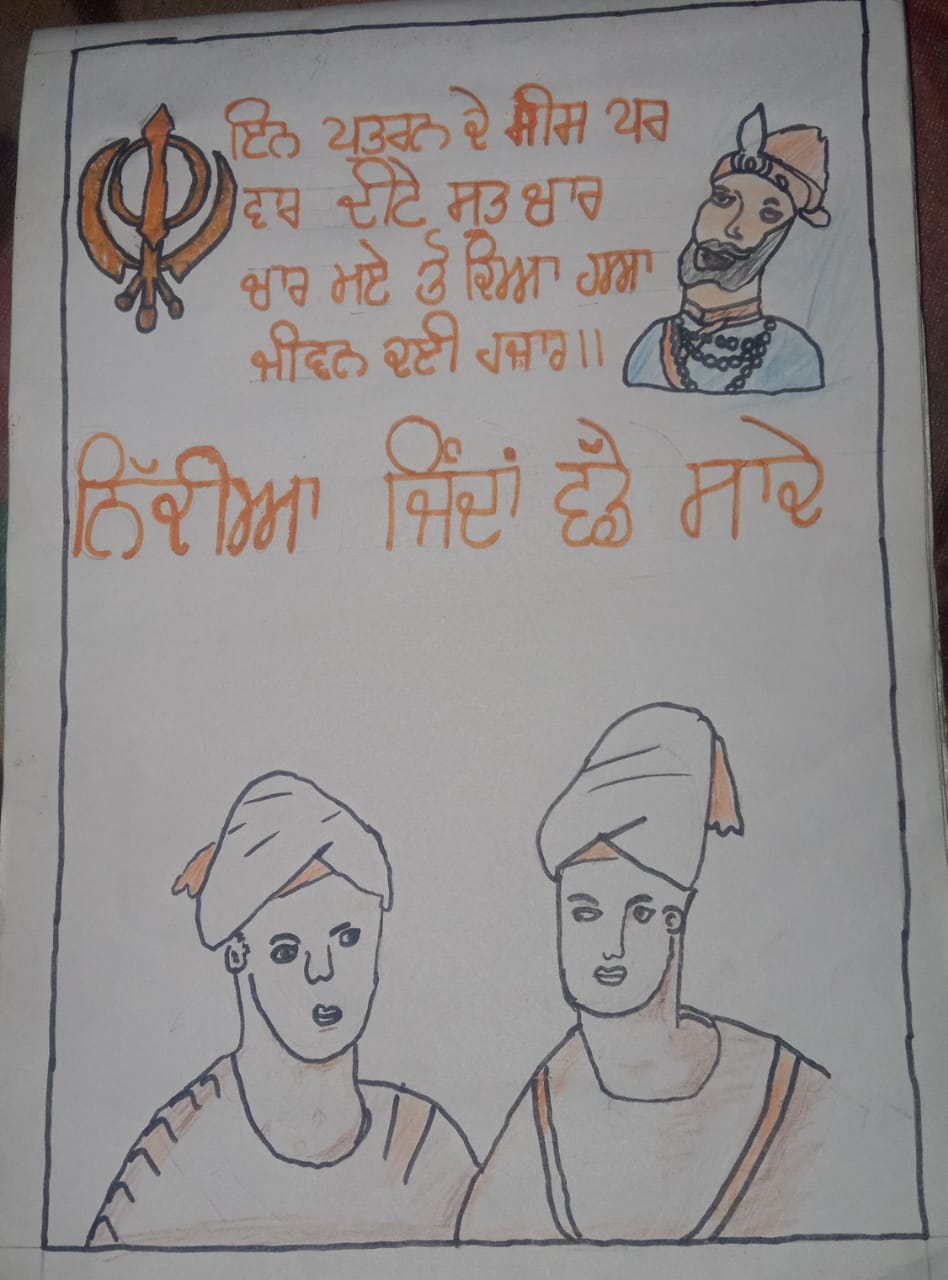 ਇਨ ਪੁਤਰਨ ਦੇ ਸੀਸ ਪਰ
ਵਾਰ ਦੀਏ ਸੁਤ ਚਾਰ
ਚਾਰ ਮੂਏ ਤੋ ਕਿਆ ਹੂਆ
ਜੀਵਨ ਕਈ ਹਜ਼ਾਰ॥
ਨਿੱਕੀਆ ਜਿੰਦਾਂ ਵੱਡੇ ਸਾਕੇ